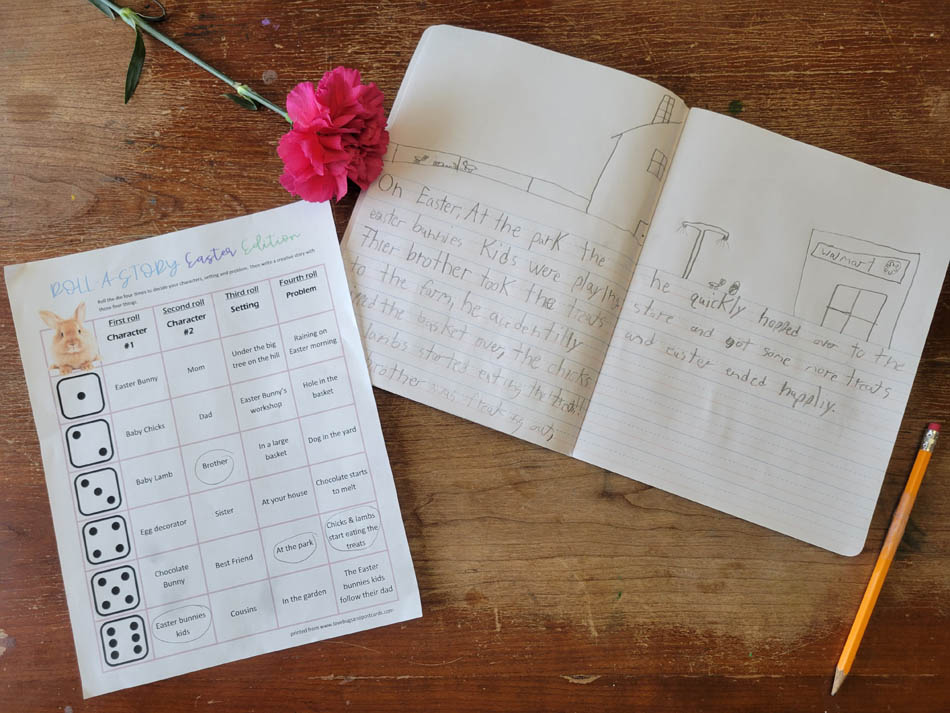 ROLL A-STORY Easter Edition
Roll the die four times to decide your characters, setting and problem. Then write a creative story with
those four things.
First roll Second roll Third roll Fourth roll
Character #1 Character #2 Setting Problem
Easter Bunny Mom Under the big tree on the hill Raining on Easter morning
Baby Chicks Dad Easter Bunny's workshop Hole in the basket
Baby Lamb Brother In a large basket Dog in the yard
Egg decorator Sister At your house Chocolate starts to melt
Chocolate Bunny Best Friend At the park Chicks & lambs start eating the treats
Easter bunnies kids Cousins In the garden The Easter bunnies kids follow their dad
printed from www.lovebugsandpostcards.com
On Easter, At the park the
easter bunnies Kids were playing
Thier brother took the treats
to the farm, he accidentilly
the basket over, the chicks
lambs started eating the treats!!
brother was freaking out,
walmart
he quickly hopped over to the
store and got some more treats
and easter ended happliy.